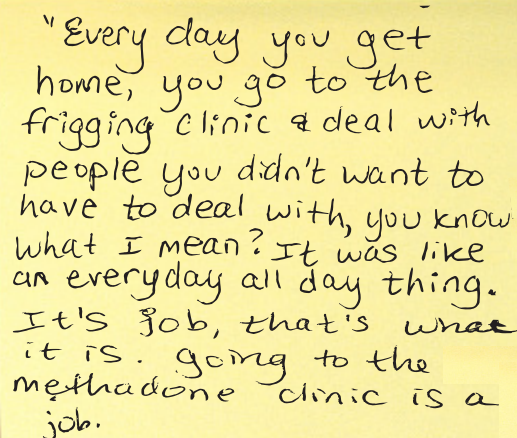 "Every day you get
home, you go to the
frigging clinic & deal with
people you didn't want to
have to deal with, you know
what I mean? It was like
an everyday all day thing.
It's job, that's what
it is. going to the
methadone clinic is a
job.